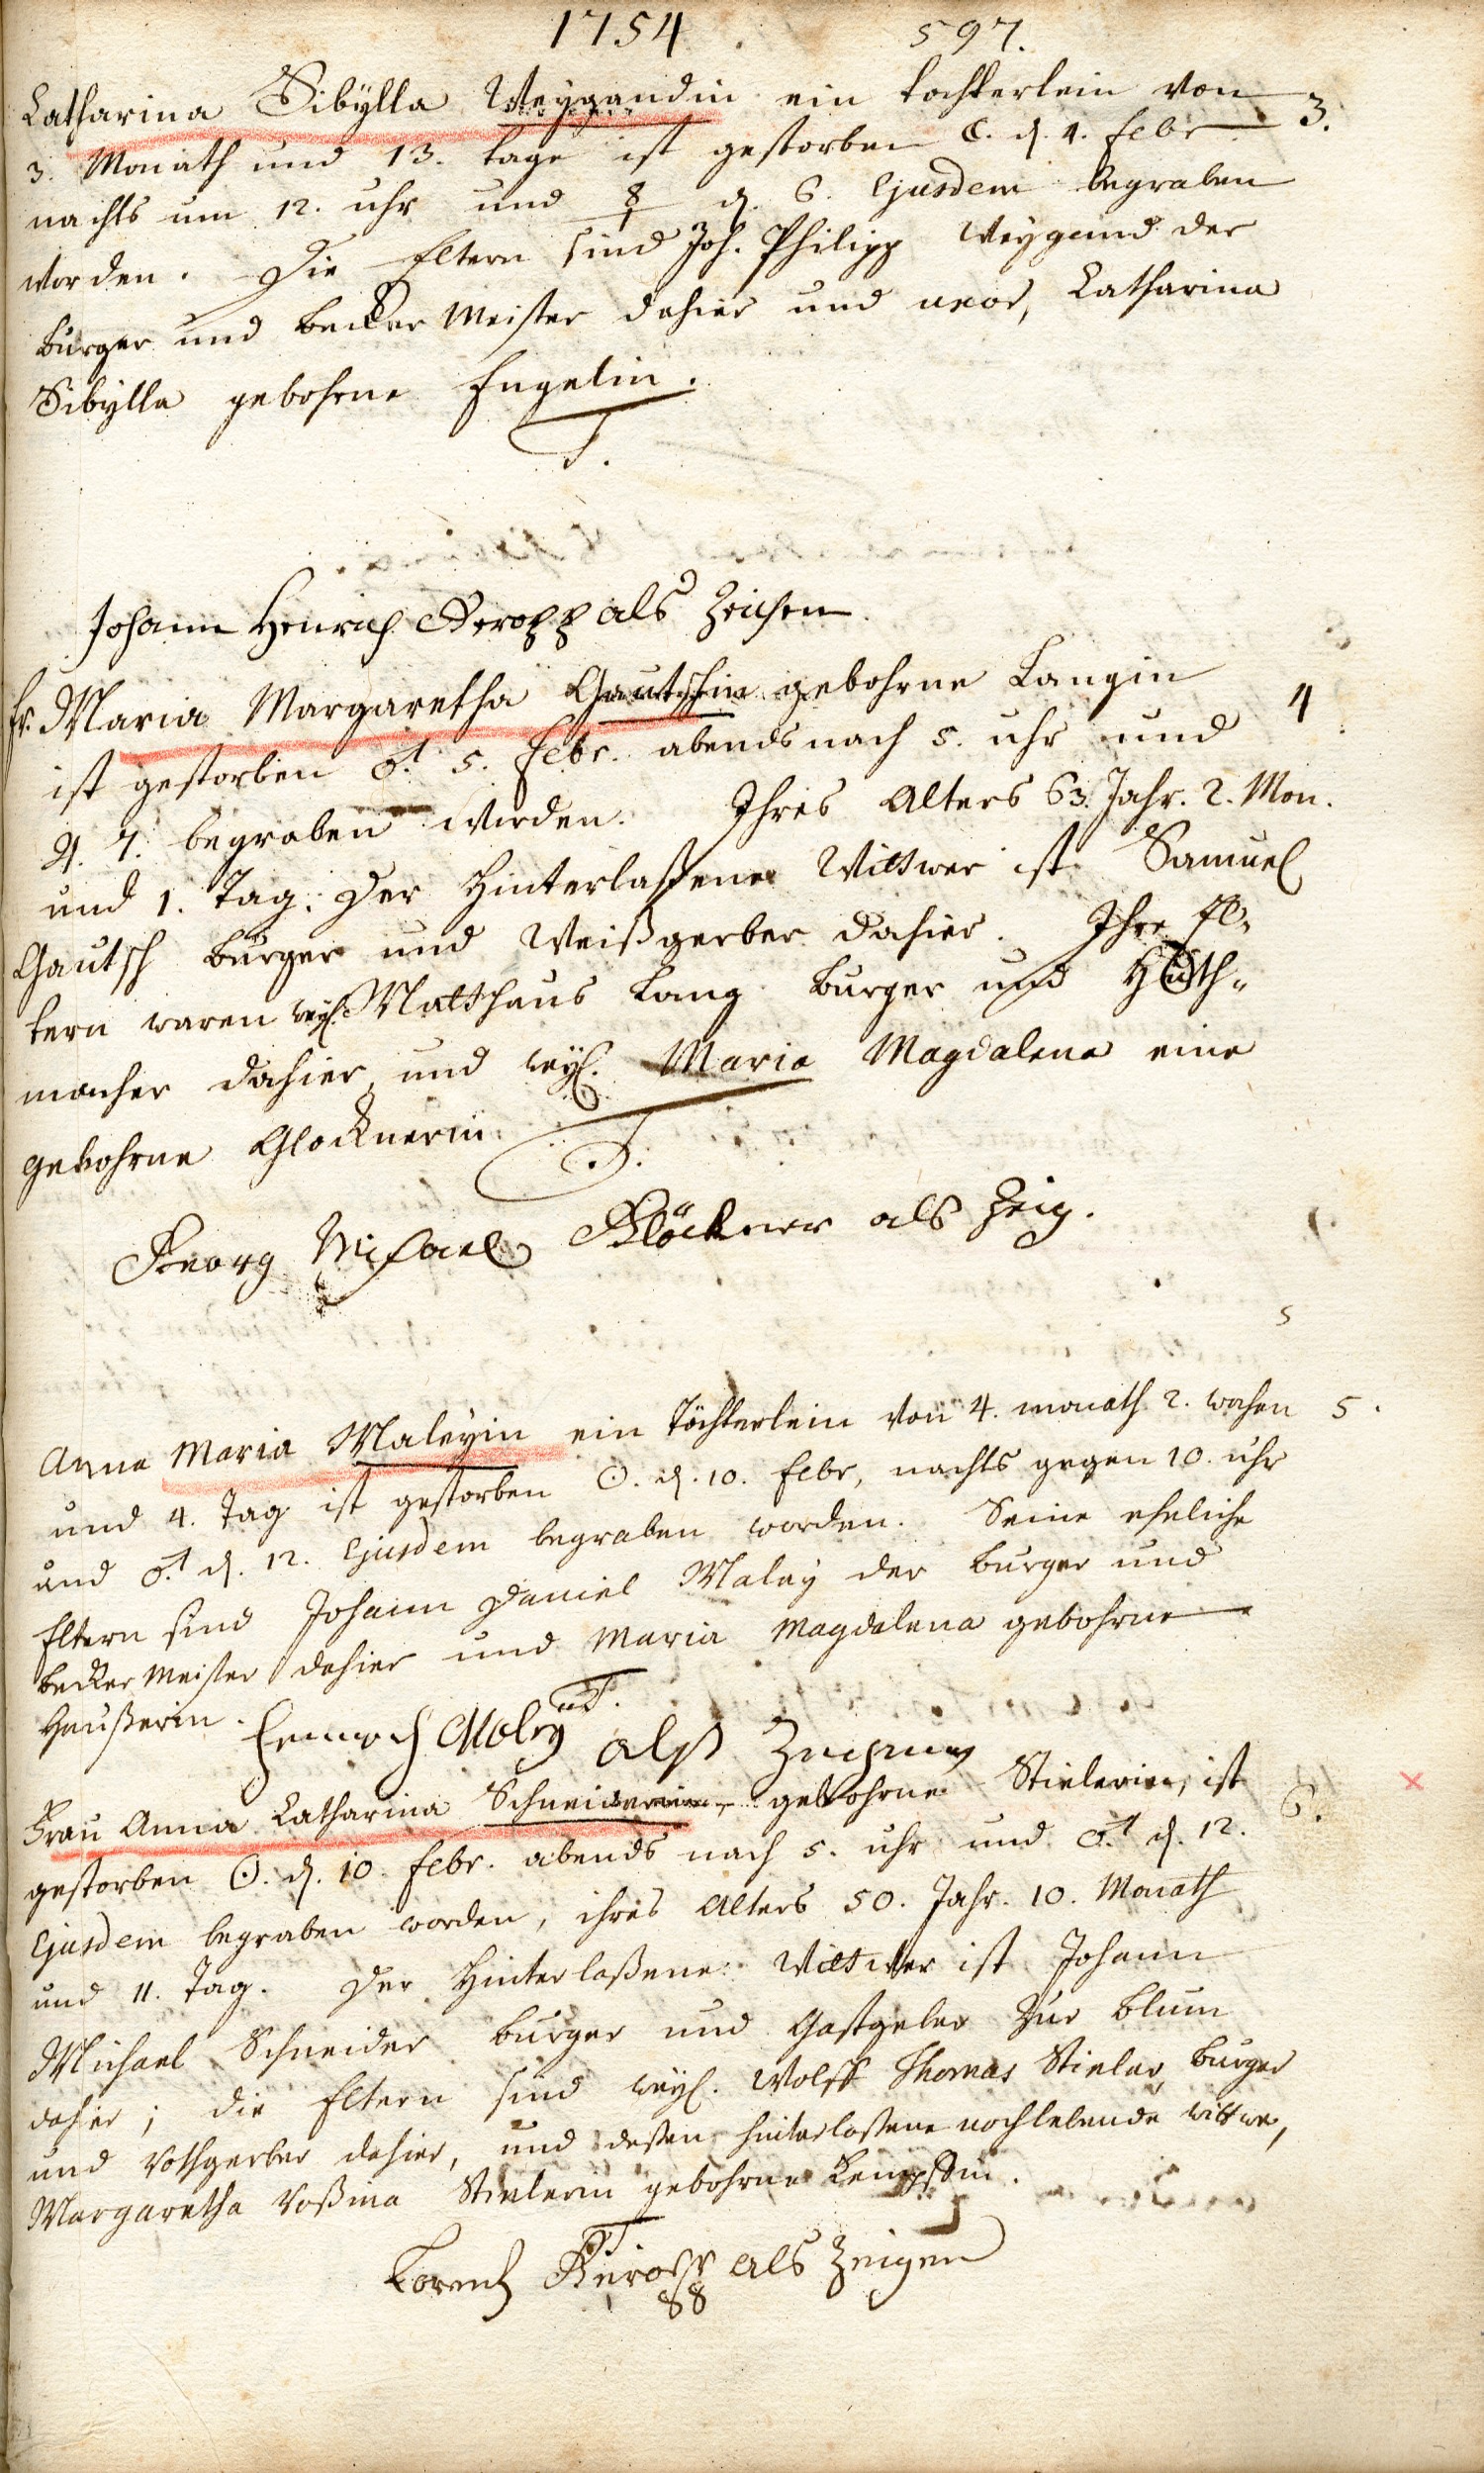 1754. 597.
Catharina Sibylla Weygandin ein tochterlein von 3.
3. Monath und 13. tage ist gestorben ☾. d. 4. Febr
nachts um 12. uhr und ☿ d. 6. Ejusdem begraben
worden. Die Eltern sind Joh. Philipp Weygand der
burger und becker Meister dahier und uxor, Catharina
Sibylla gebohrne Engelin.
T.
Johann Henrich als Zeichen
Fr. Maria Margaretha Gautschin gebohrne Langin 4
ist gestorben ♂. 5. Febr. abends nach 5. uhr und
♃. 7. begraben worden. Ihres Alters 63. Jahr. 2. Mon.
und 1. Tag. Der Hinterlaßene Wittwer ist Samuel
Gautsch burger und Weißgerber dahier. Ihre El-
tern waren weyl. Matthaus Lang burger und Huth-
macher dahier, und weyl. Maria Magdalena eine
gebohrne Glocknerin.
T.
Georg Michael Glöckner als Zeig.
5
Anna Maria Maleyin ein Töchterlein von 4. monath 2. wochen 5.
und 4. Tag ist gestorben ☉. d. 10. Febr, nachts gegen 10. uhr
und ♂ d. 12. Ejusdem begraben worden. Seine eheliche
Eltern sind Johann Daniel Maley der burger und
becker Meister dahier und Maria Magdalena gebohrne
Haußerin.
T.
Maley alß
Frau Anna Catharina Schneiderin, gebohrne Stielerin, ist 6.
gestorben ☉. d. 10. Febr. abends nach 5. uhr und ♂ d. 12.
Ejusdem begraben worden, ihres Alters 50. Jahr. 10. Monath
und 11. Tag. Der Hinterlaßene Wittwer ist Johann
Michael Schneider burger und Gastgeber zur blum
dahier; die Eltern sind weyl. Wolff Thomas Stieler, burger
und rothgerber dahier, und deßen hinterlaßene nochlebende wittwe,
Margaretha Roßina Stielerin gebohrne
T.
Lorentz als Zeigen